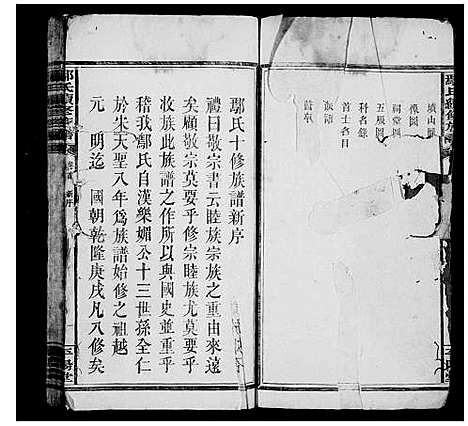 墳山圖
像圖
祠堂圖
五服圖
科名錄
首士名目
鄢氏十修族譜新序
禮曰敬宗書云睦族宗族之重由來遠
矣顧敬宗莫要乎修宗睦族尤莫要乎
收族此族譜之作所以與國史並重乎
稽我鄢氏自漢樂媚公十三世孫全仁
於宋天聖八年為族譜始修之祖越
元 明迄 國朝乾隆庚戌凡八修矣